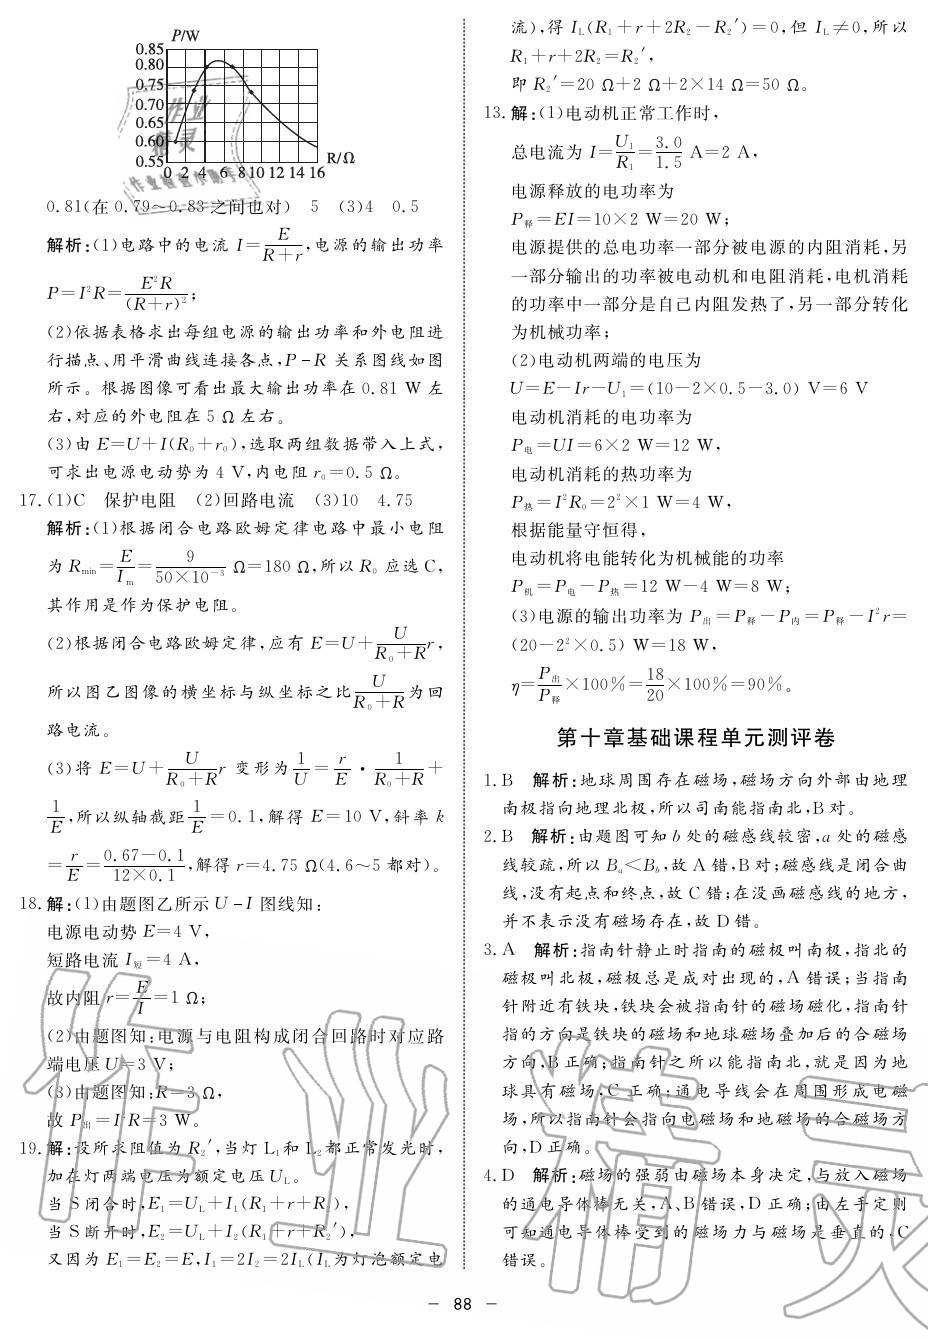 P/W
0.85
0.80
0.75
0.70
0.65
0.60
0.55
0 2 4 6 8 10 12 14 16
R/Ω
0.81(在 0.79～0.83 之间也对)　5　(3)4　0.5
解析:(1)电路中的电流 I=E/(R+r),电源的输出功率
P=I²R=E²R/(R+r)²;
(2)依据表格求出每组电源的输出功率和外电阻进
行描点、用平滑曲线连接各点,P-R 关系图线如图
所示。根据图像可看出最大输出功率在 0.81 W 左
右,对应的外电阻在 5 Ω 左右。
(3)由 E=U+I(R₀+r₀),选取两组数据带入上式,
可求出电源电动势为 4 V,内电阻 r₀=0.5 Ω。
17.(1)C　保护电阻　(2)回路电流　(3)10　4.75
解析:(1)根据闭合电路欧姆定律电路中最小电阻
为 Rmin=E/Im=9/(50×10⁻³) Ω=180 Ω,所以 R₀ 应选 C,
其作用是作为保护电阻。
(2)根据闭合电路欧姆定律,应有 E=U+U/(R₀+R)r,
所以图乙图像的横坐标与纵坐标之比U/(R₀+R)为回
路电流。
(3)将 E=U+U/(R₀+R)r 变形为1/U=r/E·1/(R₀+R)+
1/E,所以纵轴截距1/E=0.1,解得 E=10 V,斜率 k
=r/E=(0.67-0.1)/(12×0.1),解得 r=4.75 Ω(4.6～5 都对)。
18.解:(1)由题图乙所示 U-I 图线知:
电源电动势 E=4 V,
短路电流 I短=4 A,
故内阻 r=E/I=1 Ω;
(2)由题图知:电源与电阻构成闭合回路时对应路
端电压 U=3 V;
(3)由题图知:R=3 Ω,
故 P出=I²R=3 W。
19.解:设所求阻值为 R₂′,当灯 L₁和 L₂都正常发光时,
加在灯两端电压为额定电压 UL。
当 S 闭合时,E₁=UL+I₁(R₁+r+R₂),
当 S 断开时,E₂=UL+I₂(R₁+r+R₂′),
又因为 E₁=E₂=E,I₁=2I₂=2IL(IL为灯泡额定电
流),得 IL(R₁+r+2R₂-R₂′)=0,但 IL≠0,所以
R₁+r+2R₂=R₂′,
即 R₂′=20 Ω+2 Ω+2×14 Ω=50 Ω。
13.解:(1)电动机正常工作时,
总电流为 I=U₁/R₁=3.0/1.5 A=2 A,
电源释放的电功率为
P释=EI=10×2 W=20 W;
电源提供的总电功率一部分被电源的内阻消耗,另
一部分输出的功率被电动机和电阻消耗,电机消耗
的功率中一部分是自己内阻发热了,另一部分转化
为机械功率;
(2)电动机两端的电压为
U=E-Ir-U₁=(10-2×0.5-3.0) V=6 V
电动机消耗的电功率为
P电=UI=6×2 W=12 W,
电动机消耗的热功率为
P热=I²R₀=2²×1 W=4 W,
根据能量守恒得,
电动机将电能转化为机械能的功率
P机=P电-P热=12 W-4 W=8 W;
(3)电源的输出功率为 P出=P释-P内=P释-I²r=
(20-2²×0.5) W=18 W,
η=P出/P释×100%=18/20×100%=90%。
第十章基础课程单元测评卷
1.B　解析:地球周围存在磁场,磁场方向外部由地理
南极指向地理北极,所以司南能指南北,B 对。
2.B　解析:由题图可知 b 处的磁感线较密,a 处的磁感
线较疏,所以 Ba<Bb,故 A 错,B 对;磁感线是闭合曲
线,没有起点和终点,故 C 错;在没画磁感线的地方,
并不表示没有磁场存在,故 D 错。
3.A　解析:指南针静止时指南的磁极叫南极,指北的
磁极叫北极,磁极总是成对出现的,A 错误;当指南
针附近有铁块,铁块会被指南针的磁场磁化,指南针
指的方向是铁块的磁场和地球磁场叠加后的合磁场
方向,B 正确;指南针之所以能指南北,就是因为地
球具有磁场,C 正确;通电导线会在周围形成电磁
场,所以指南针会指向电磁场和地磁场的合磁场方
向,D 正确。
4.D　解析:磁场的强弱由磁场本身决定,与放入磁场
的通电导体棒无关,A、B 错误,D 正确;由左手定则
可知通电导体棒受到的磁场力与磁场是垂直的,C
错误。
— 88 —
作业精灵